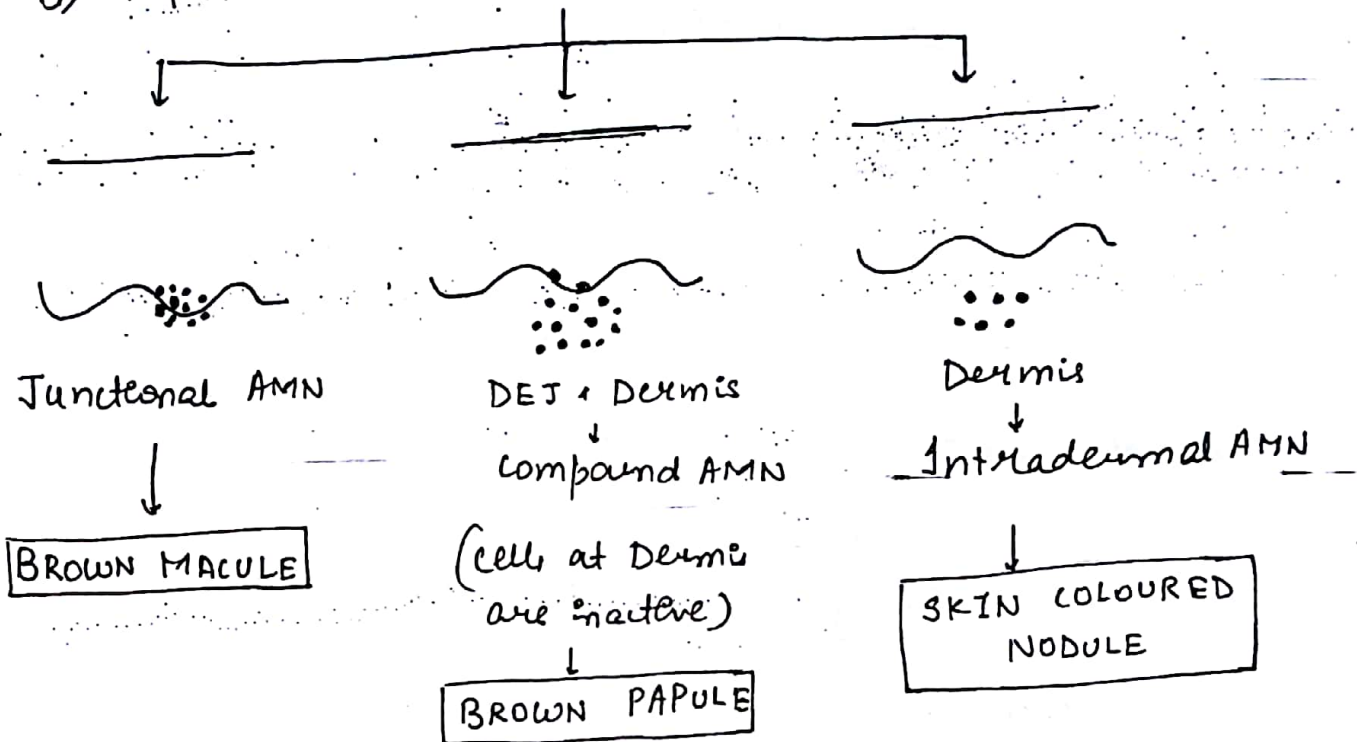 Junctional AMN
BROWN MACULE
DEJ + Dermis
Compound AMN
(cells at Dermis
are inactive)
BROWN PAPULE
Dermis
Intradermal AMN
SKIN COLOURED
NODULE